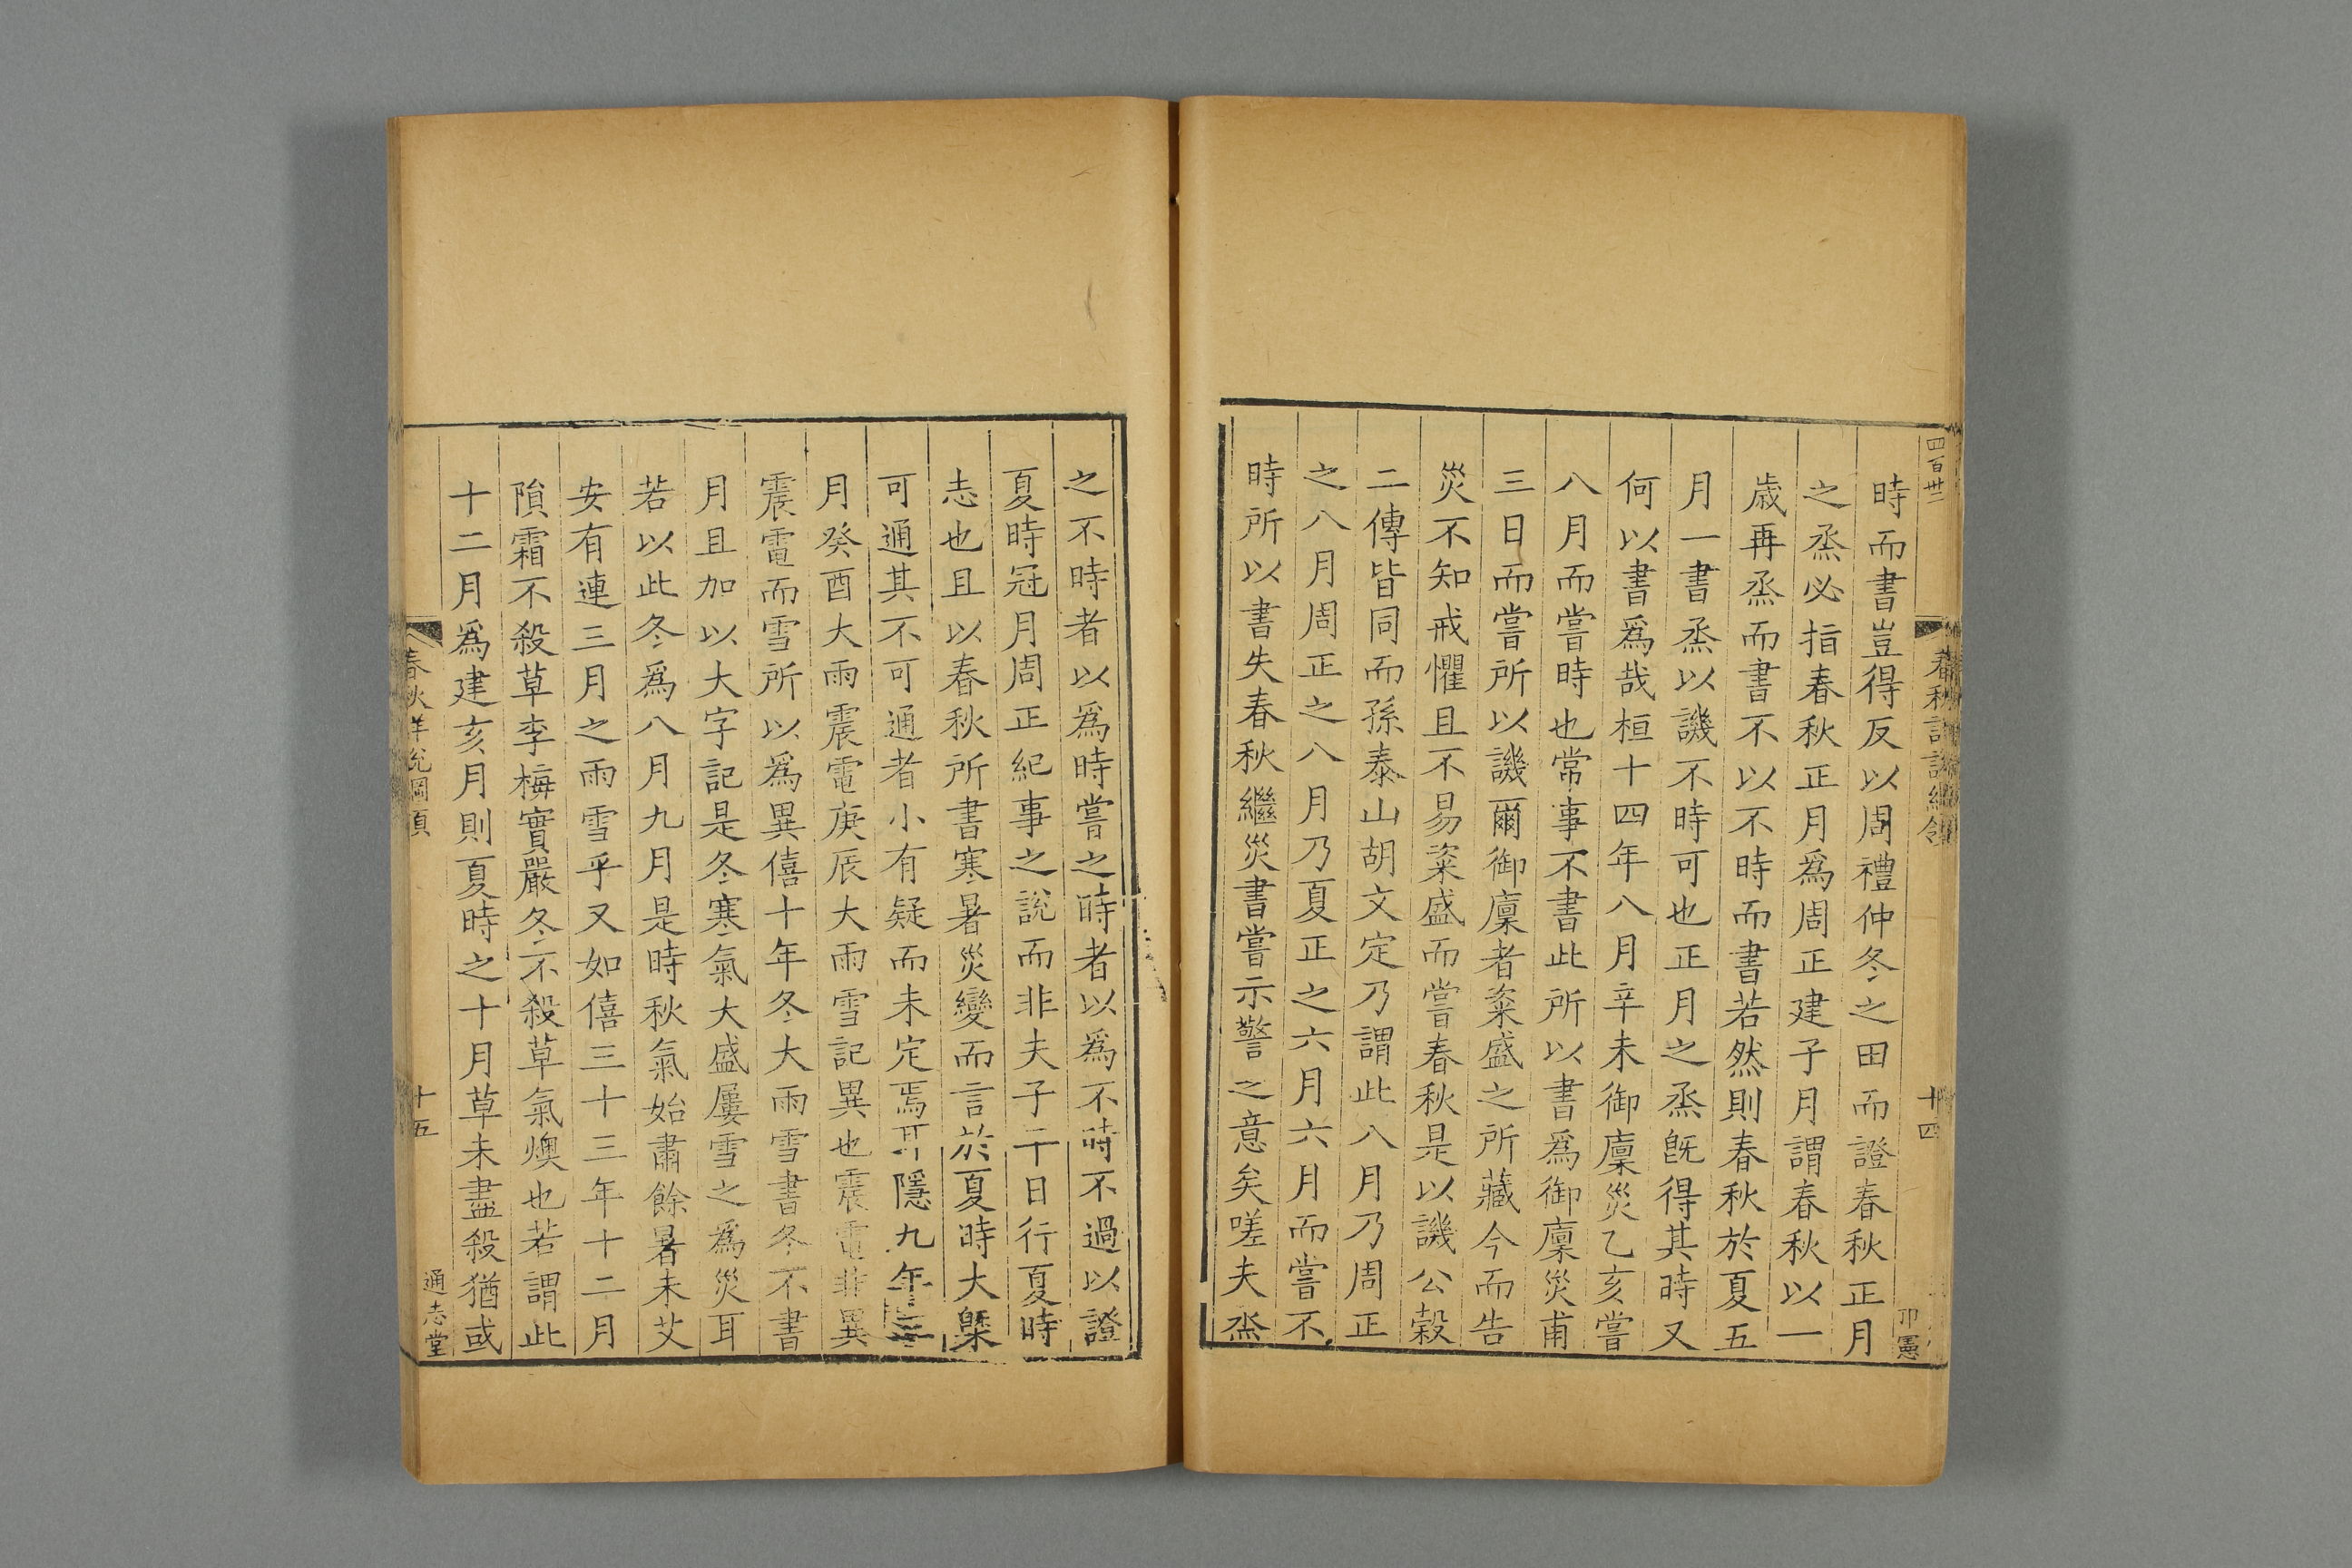 四百卅二
時而書豈得反以周禮仲冬之田而證春秋正月
之烝必指春秋正月為周正建子月謂春秋以一
歳再烝而書不以不時而書若然則春秋於夏五
月一書烝以譏不時可也正月之烝旣得其時又
何以書爲哉桓十四年八月辛未御廩災乙亥嘗
八月而嘗時也常事不書此所以書爲御廩災甫
三日而嘗所以譏爾御廩者粢盛之所藏今而告
災不知戒懼且不易粢盛而嘗春秋是以譏公榖
二傳皆同而孫泰山胡文定乃謂此八月乃周正
之八月周正之八月乃夏正之六月六月而嘗不
時所以書失春秋繼災書嘗示警之意矣嗟夫烝
之不時者以爲時嘗之時者以爲不時不過以證
夏時冠月周正紀事之說而非夫子平日行夏時
志也且以春秋所書寒暑災變而言於夏時大槩
可通其不可通者小有疑而未定焉耳隱九年三
月癸酉大雨震電庚辰大雨雪記異也震電非異
震電而雪所以爲異僖十年冬大雨雪書冬不書
月且加以大字記是冬寒氣大盛屢雪之爲災耳
若以此冬爲八月九月是時秋氣始肅餘暑未艾
安有連三月之雨雪乎又如僖三十三年十二月
隕霜不殺草李梅實嚴冬不殺草氣燠也若謂此
十二月爲建亥月則夏時之十月草未盡殺猶或
春秋詳說綱領
十五
通志堂